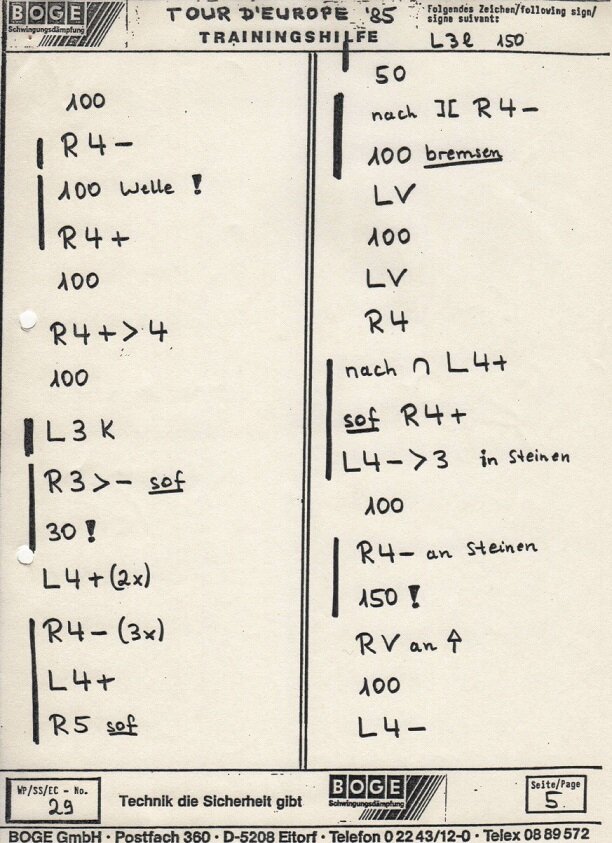 BOGE
Schwingungsdämpfung
TOUR D'EUROPE '85
TRAININGSHILFE
Folgendes Zeichen/following sign/
signe suivant:
L3l 150
100
R4-
100 Welle !
R4+
100
R4+>4
100
L3 K
R3>- sof
30!
L4+(2x)
R4- (3x)
L4+
R5 sof
50
nach ][ R4-
100 bremsen
LV
100
LV
R4
nach ∩ L4+
sof R4+
L4->3 in Steinen
100
R4- an Steinen
150!
RV an ↑
100
L4-
WP/SS/EC - No.
29
Technik die Sicherheit gibt
BOGE
Schwingungsdämpfung
Seite/Page
5
BOGE GmbH · Postfach 360 · D-5208 Eitorf · Telefon 0 22 43/12-0 · Telex 08 89 572